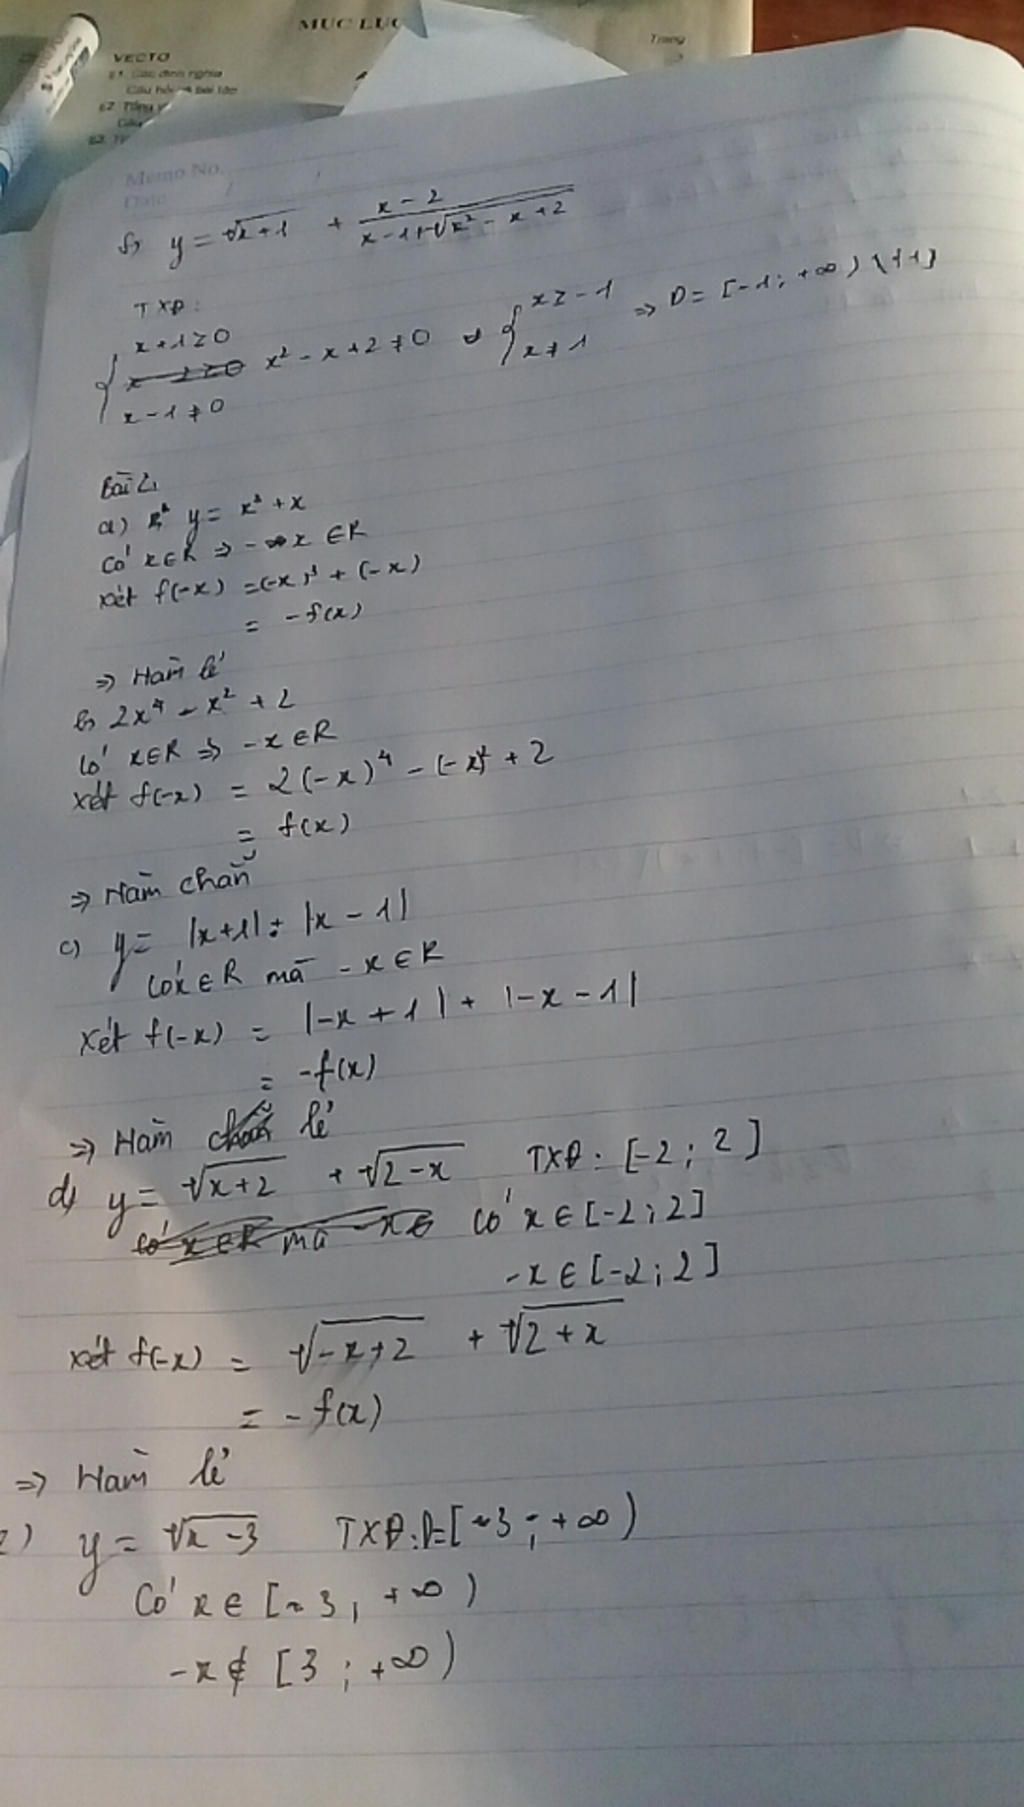 MỤC LỤC
Trang
VECTO
§1. Các định nghĩa
Câu hỏi và bài tập
§2. Tổng
Câu
§3.
Memo No.
Date / /
f) y = √x+1 + x - 2 / x - 1 + √x² - x + 2
TXĐ:
x + 1 ≥ 0
x² - x + 2 ≠ 0
x - 1 ≠ 0
x ≥ - 1
x ≠ 1
=> D = [-1; +∞) \ {1}
Bài 2,
a) y = x³ + x
Có x∈R => - x ∈R
xét f(-x) = (-x)³ + (-x)
= - f(x)
=> Hàm lẻ
b, 2x⁴ - x² + 2
Có x∈R => -x ∈R
xét f(-x) = 2(-x)⁴ - (-x)² + 2
= f(x)
=> Hàm chẵn
c) y = |x+1| + |x - 1|
Có x∈R mà - x ∈ R
xét f(-x) = |-x + 1| + |-x - 1|
= -f(x)
=> Hàm lẻ
d) y = √x+2 + √2-x TXĐ: [-2; 2]
Có x ∈ R mà -x ∈ Có x ∈ [-2; 2]
-x ∈ [-2; 2]
xét f(-x) = √-x+2 + √2+x
= - f(x)
=> Hàm lẻ
y = √x-3 TXĐ: D=[3; +∞)
Có x ∈ [3; +∞)
-x ∉ [3; +∞)